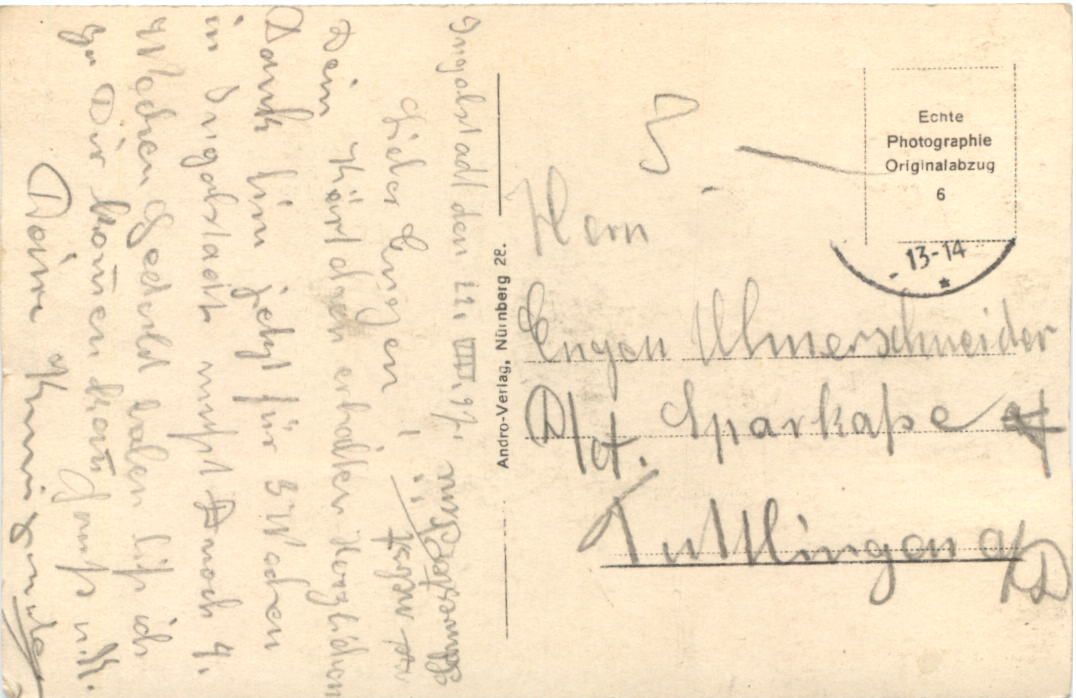 Ingolstadt den 11. VIII. 41.
Lieber Eugen!
Dein Kärtchen erhalten herzlichen
Dank bin jetzt für 3 Wochen
in Ingolstadt mußt noch 4.
Wochen Gedult haben bis ich
zu Dir komen kan Gruß u.
Deine
Schwester
Andro-Verlag, Nürnberg 28.
Echte
Photographie
Originalabzug
6
13-14
Hern
Eugen Ulmerschneider
Sparkaße
Tuttlingen a/D